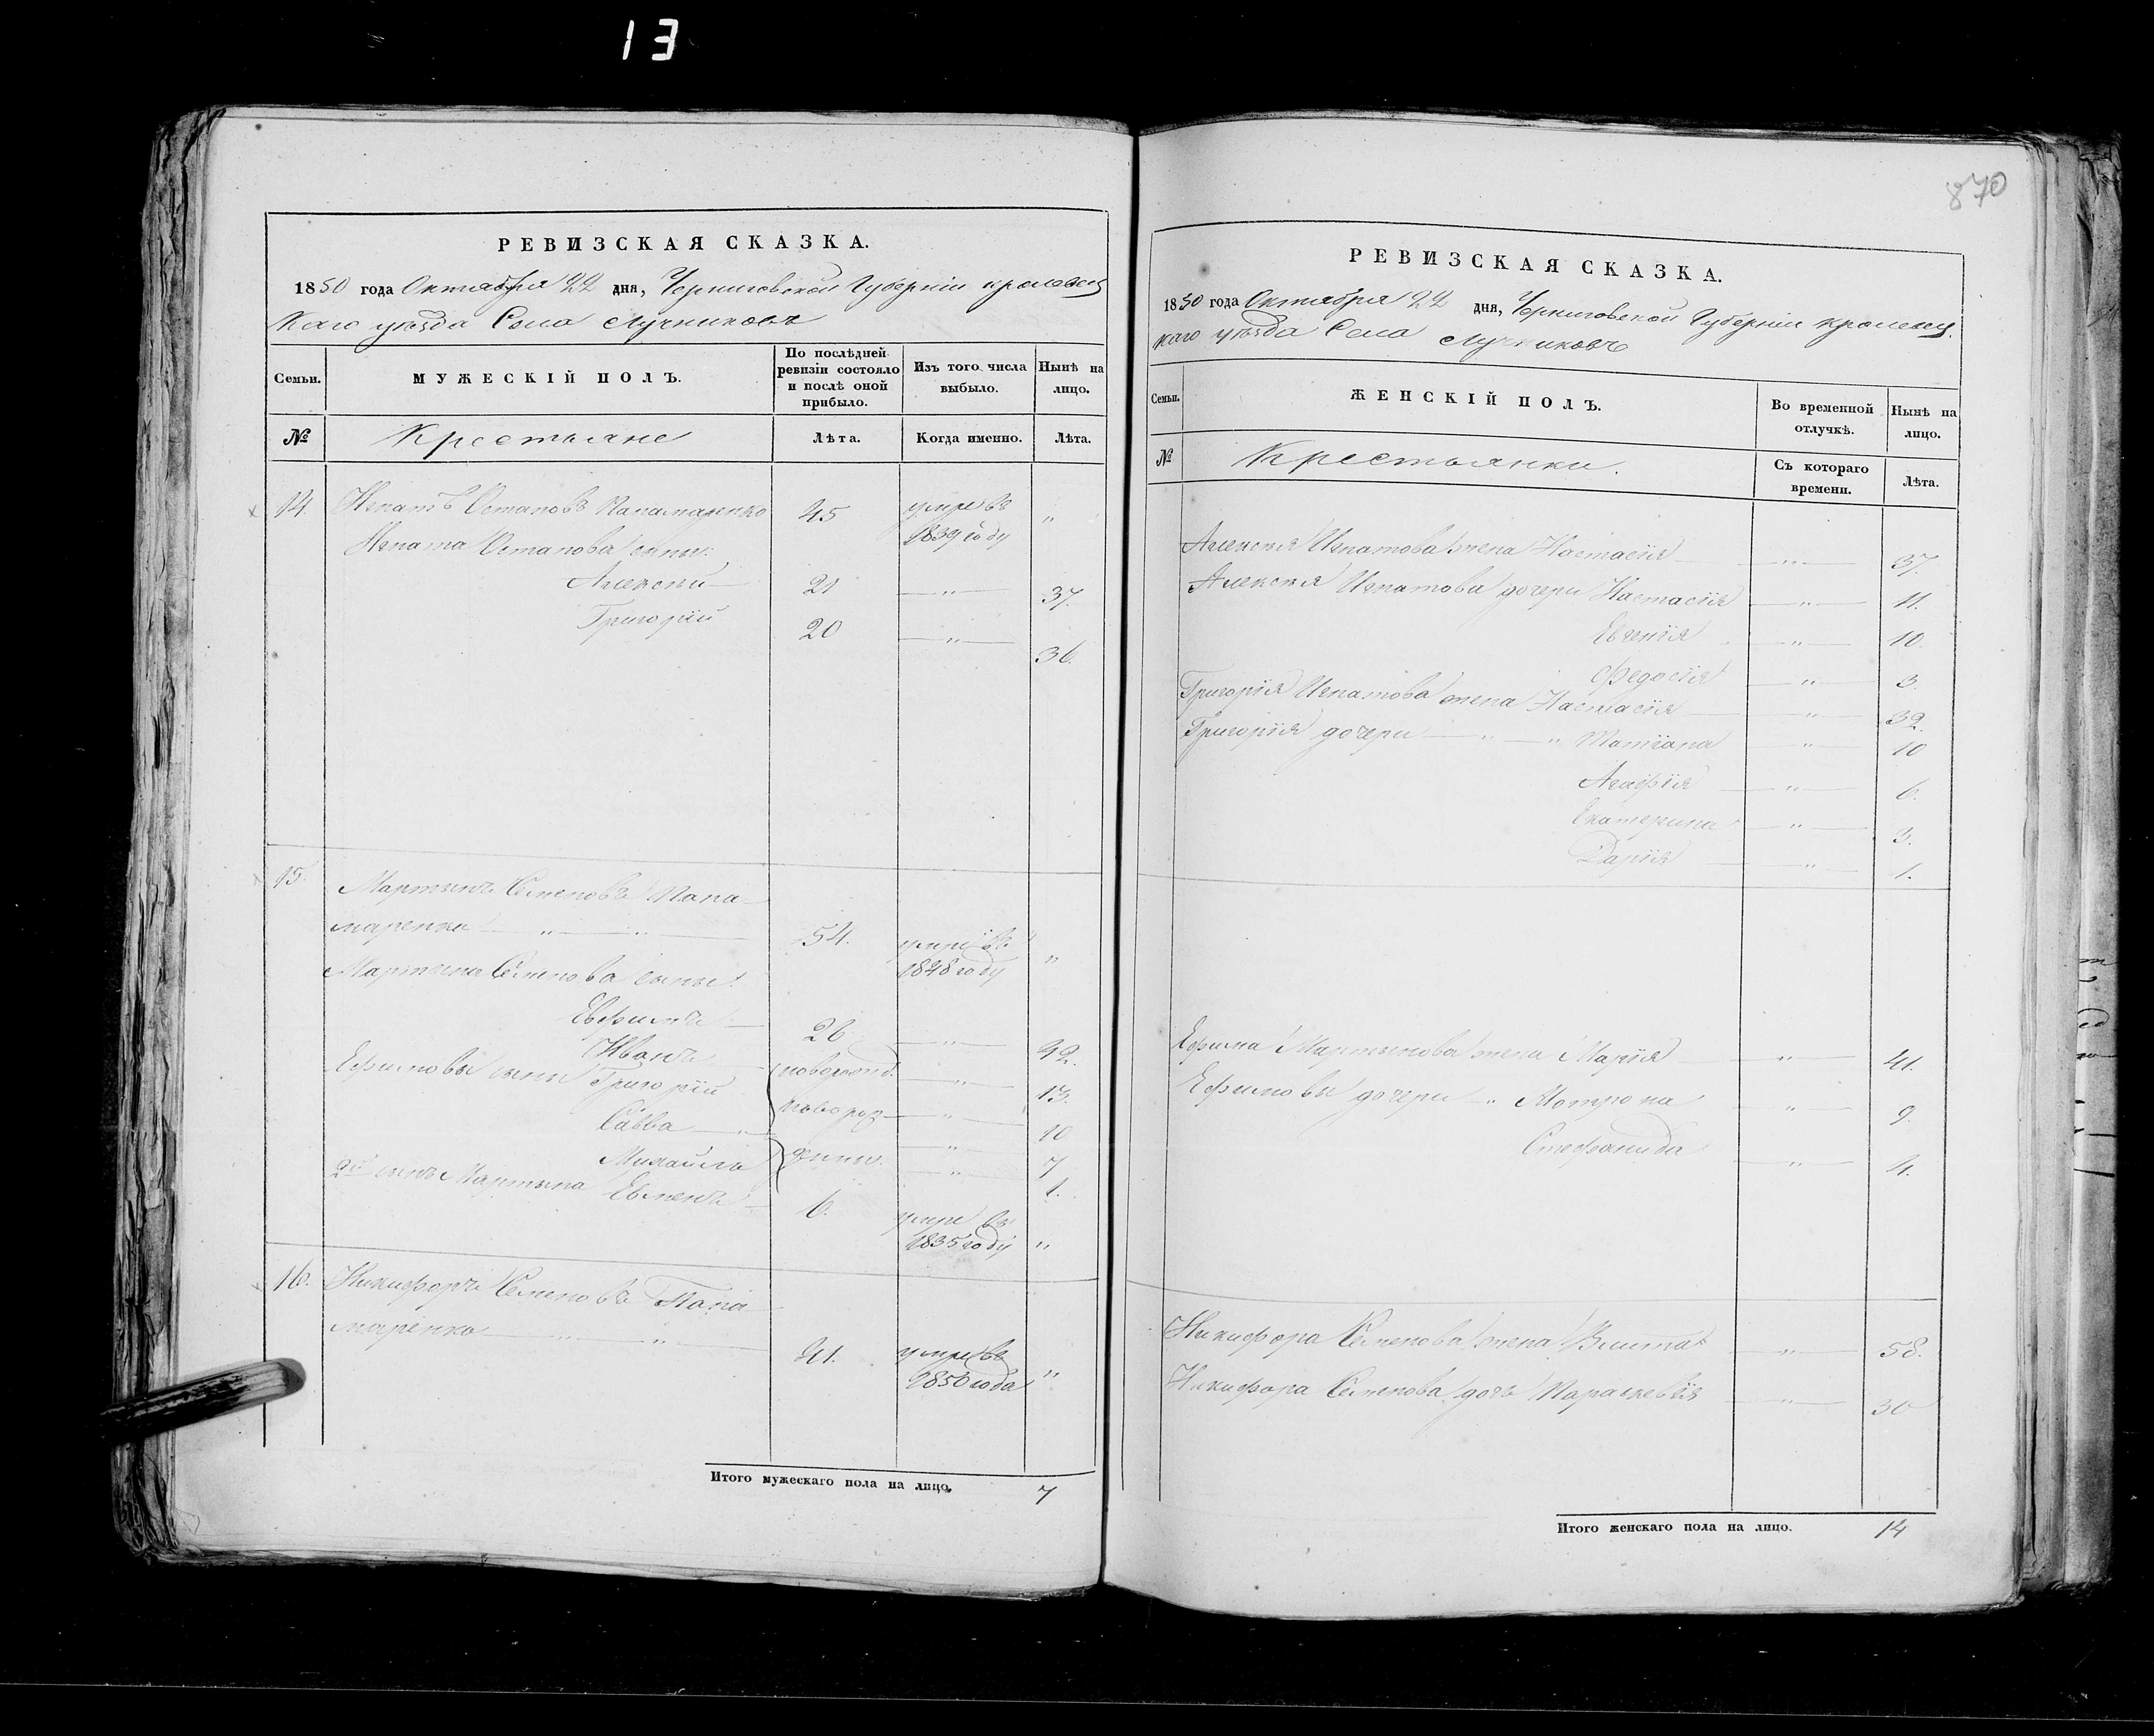 13
870
РЕВИЗСКАЯ СКАЗКА.
1850 года Октября 22 дня, Черниговской Губерніи кролевец
каго уѣзда Села Лучниковъ
Семьи.
МУЖЕСКІЙ ПОЛЪ.
По послѣдней ревизіи состояло и послѣ оной прибыло.
Изъ того числа выбыло.
Нынѣ на лицо.
№
Крестьяне
Лѣта.
Когда именно.
Лѣта.
14. Игнатъ Остаповъ Папамаренко 45 умре въ 1839 году "
Игната Остапова сыны:
Алексѣй 21 " 37.
Григорій 20 " 36.
15. Мартынъ Семеновъ Папа
маренко " " 54. умре въ 1848 году "
Мартына Семенова сыны:
Евфимъ 26 " 42.
Ефимовы сыны Иванъ новорожд. " 13.
Григорій новорож " 10
Савва " денны. " 7
Михаилъ " 1.
2й сынъ Мартына Евменъ 6. умре въ 1835 году "
16. Никифоръ Семеновъ Папа
маренко " " 41. умре въ 1850 года "
Итого мужескаго пола на лицо. 7
РЕВИЗСКАЯ СКАЗКА.
1850 года Октября 22 дня, Черниговской Губерніи кролевец.
каго уѣзда Села Лучниковъ
Семьи.
ЖЕНСКІЙ ПОЛЪ.
Во временной отлучкѣ.
Нынѣ на лицо.
№
Крестьянки.
Съ котораго времени.
Лѣта.
Алексѣя Игнатова жена Настасія " 37.
Алексѣя Игнатова дочери Настасія " 11.
Евгенія " 10.
Федосія " 3.
Григорія Игнатова жена Настасія " 32.
Григорія дочери " " Татіана " 10
Агафія " 6.
Екатерина " 3.
Дарія " 1.
Ефима Мартынова жена Марія " 41.
Ефимовы дочери " Мотрона " 9.
Стефанида " 4.
Никифора Семенова жена " 58.
Никифора Семенова дочь Параскевія " 30
Итого женскаго пола на лицо. 14